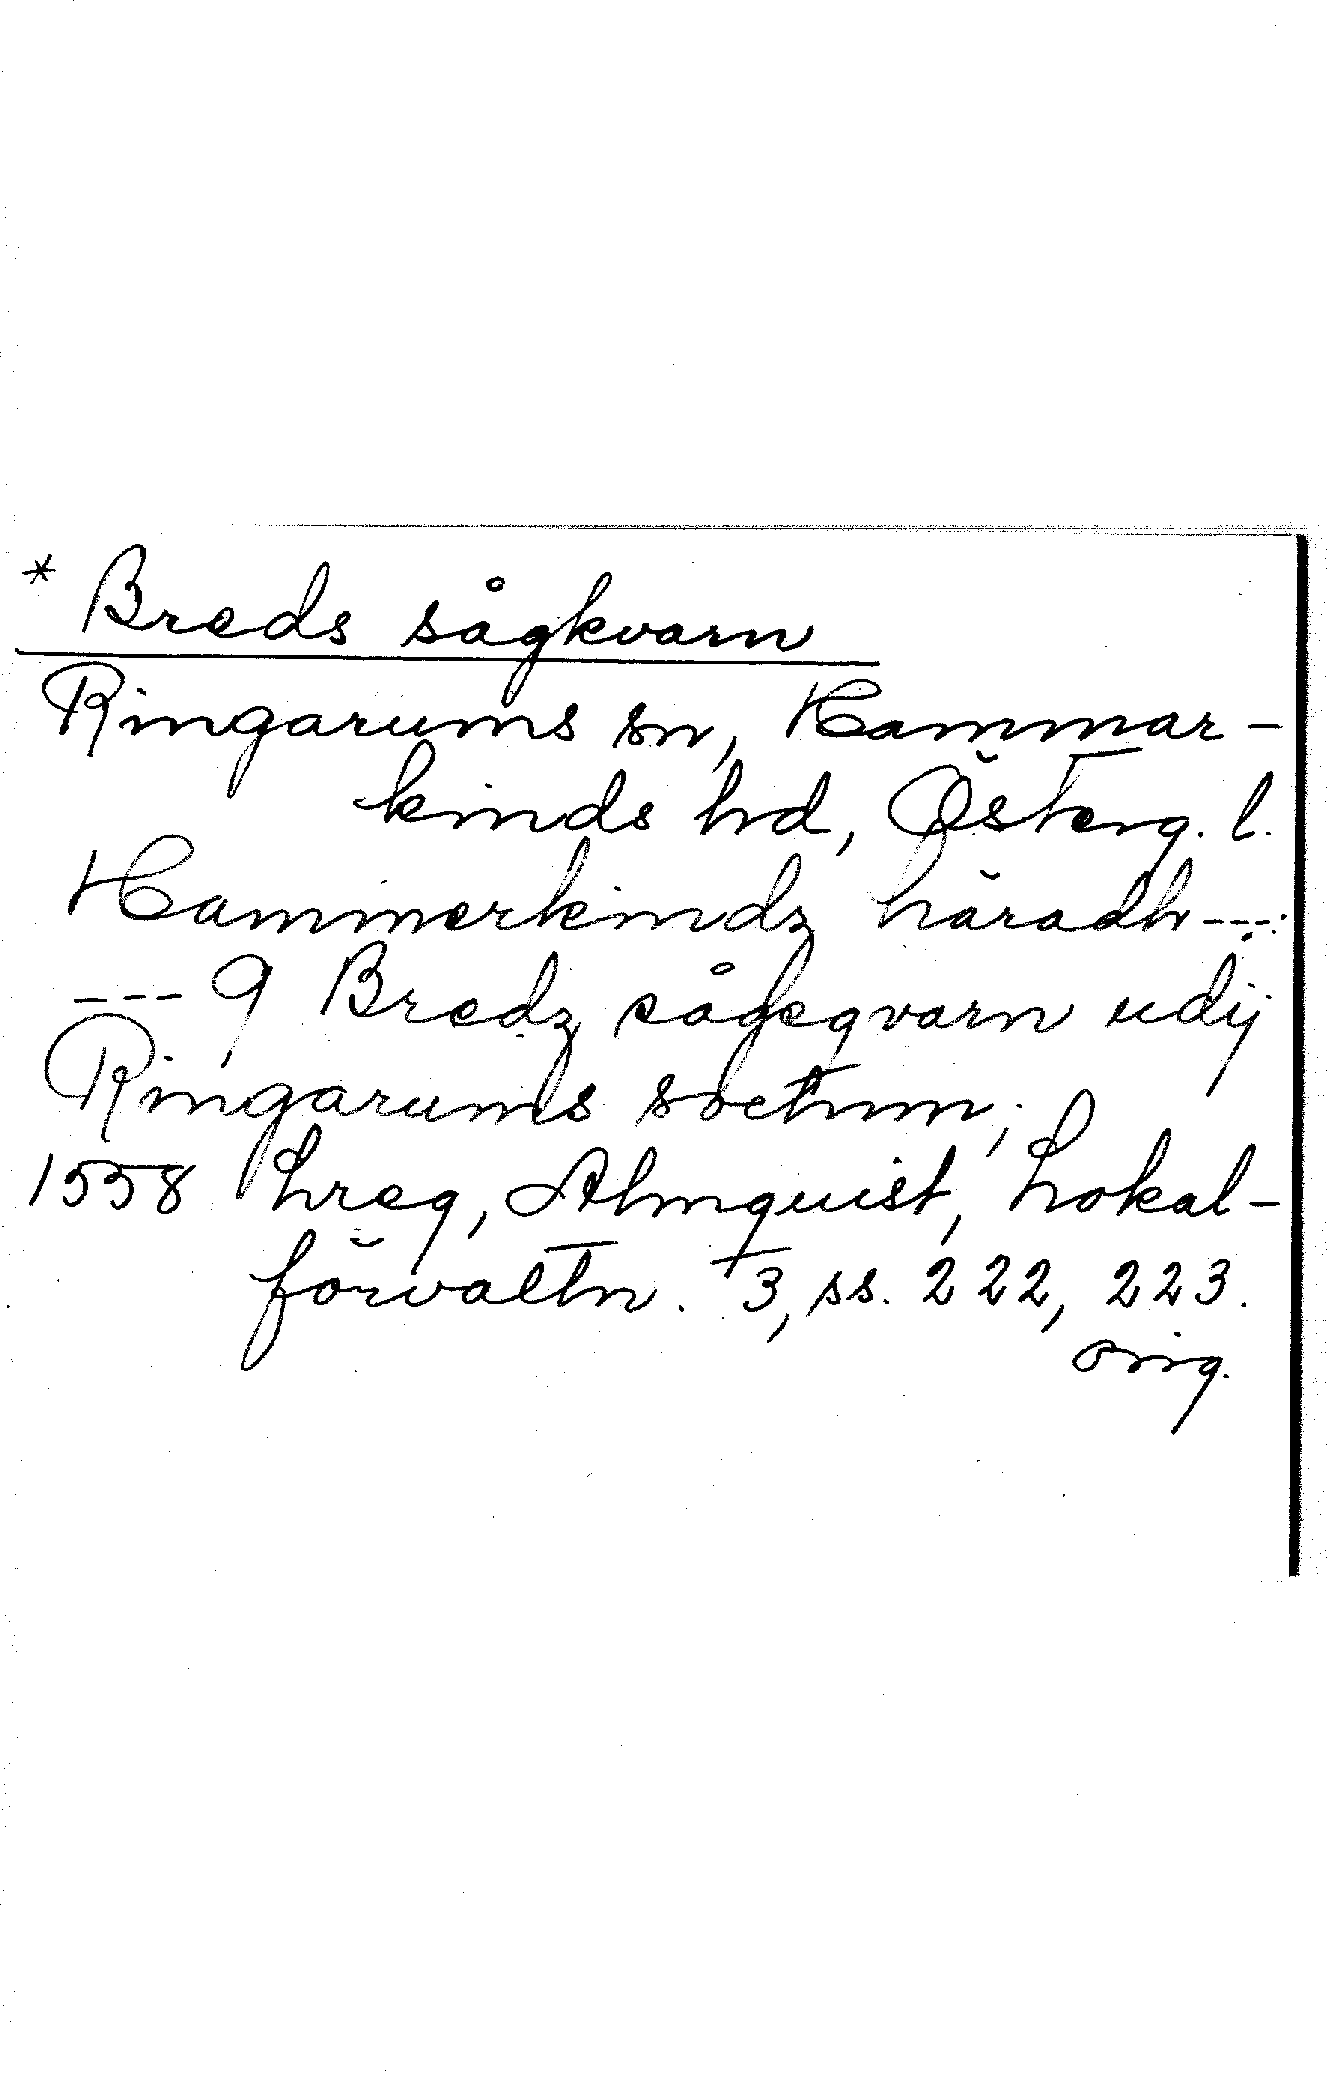 * Breds sågkvarn
Ringarums sn, Hammar-
kinds hd, Österg. l.
Hammerkindz häradh ---:
--- 9 Bredz sågeqvarn udij
Ringarums soctnn;
1558 Lreg, Almquist, Lokal-
förvaltn. 3, ss. 222, 223.
orig.